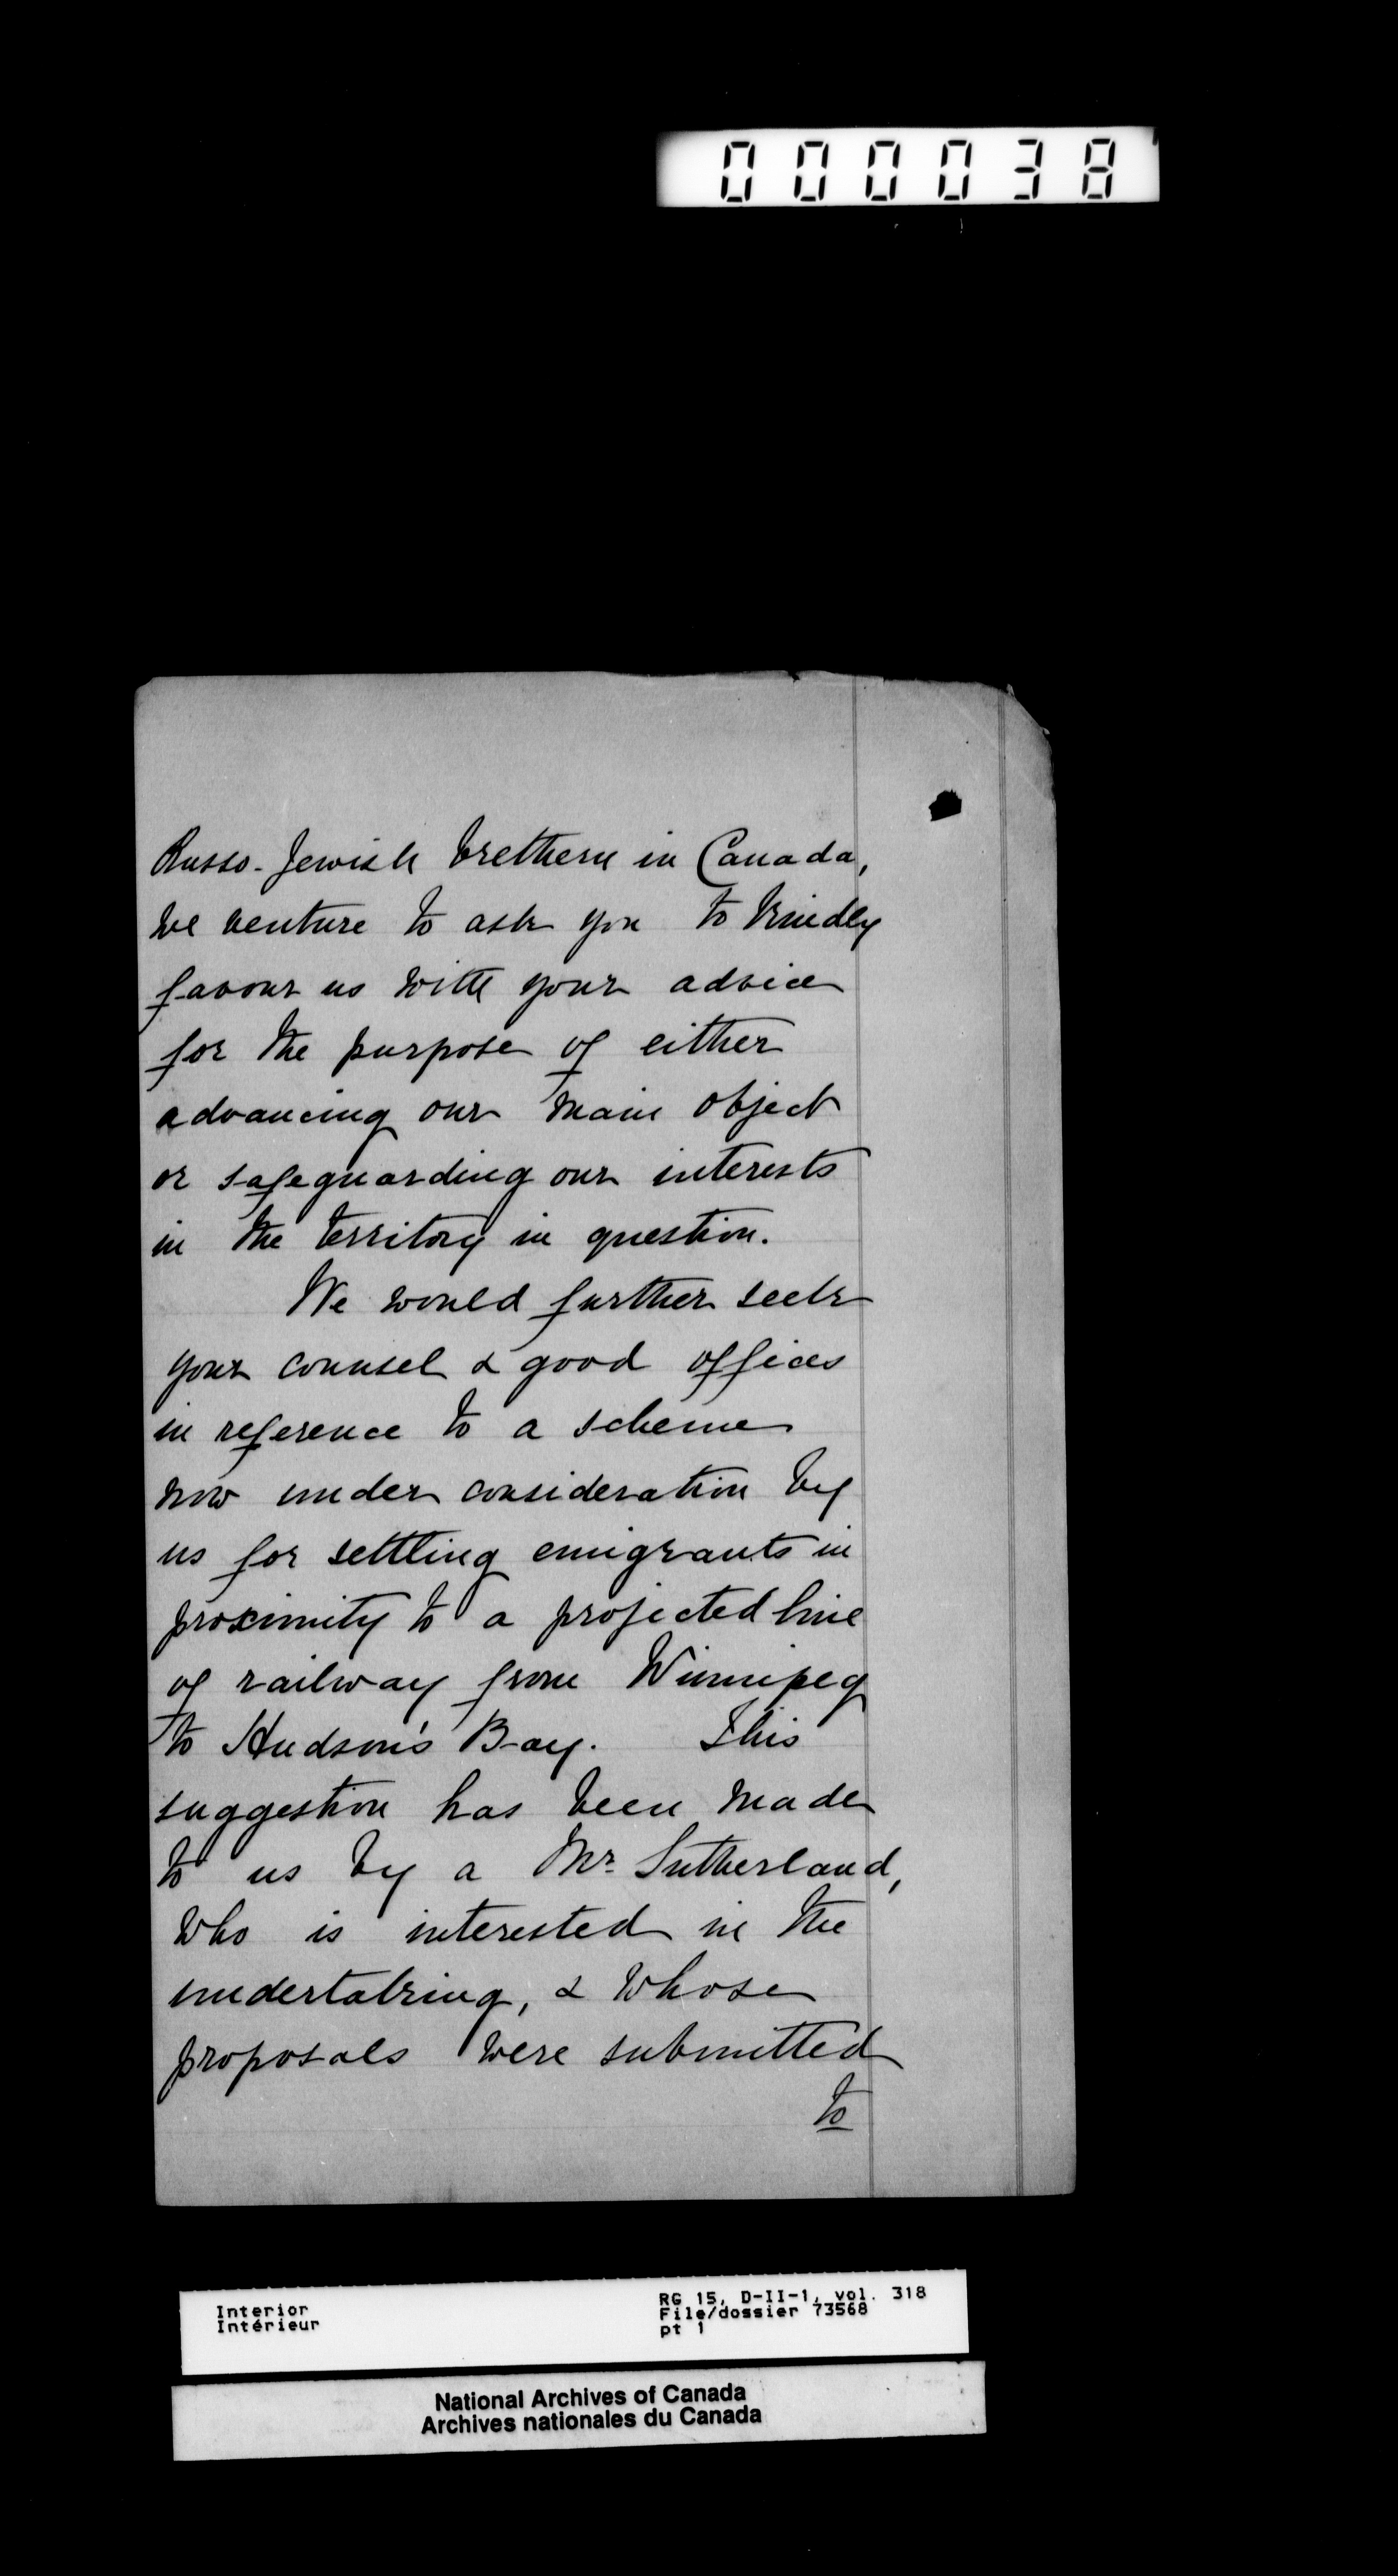 000038
Russo-Jewish brethern in Canada,
we venture to ask you to kindly
favour us with your advice
for the purpose of either
advancing our main object
or safeguarding our interests
in the territory in question.
We would further seek
your counsel & good offices
in reference to a scheme
now under consideration by
us for settling emigrants in
proximity to a projected line
of railway from Winnipeg
to Hudson's Bay. This
suggestion has been made
to us by a Mr. Sutherland,
who is interested in the
undertaking, & whose
proposals were submitted
to
Interior
Intérieur
RG 15, D-II-1, vol. 318
File/dossier 73568
pt 1
National Archives of Canada
Archives nationales du Canada